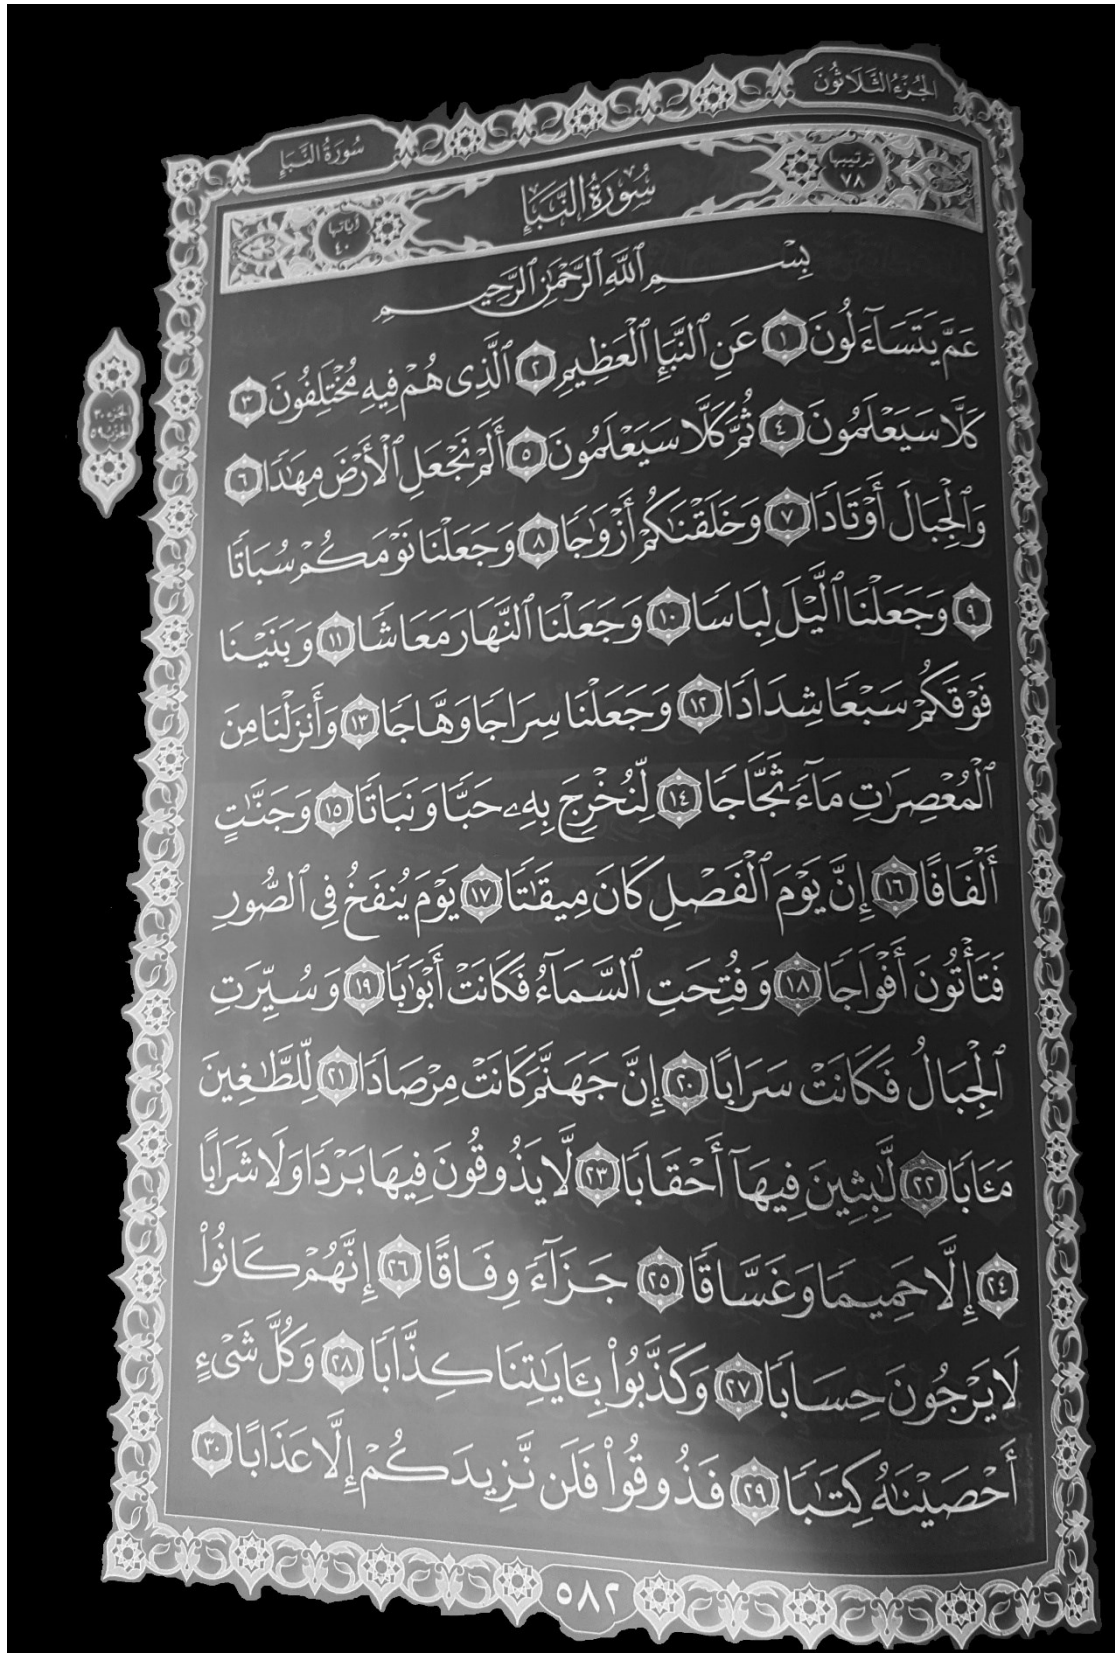 الجُزْءُ الثَّلَاثُونَ
سُورَةُ النَّبَإِ
ترتيبها
٧٨
سُورَةُ النَّبَإِ
آياتها
٤٠
بِسْمِ ٱللَّهِ ٱلرَّحْمَٰنِ ٱلرَّحِيمِ
عَمَّ يَتَسَآءَلُونَ ١ عَنِ ٱلنَّبَإِ ٱلْعَظِيمِ ٢ ٱلَّذِى هُمْ فِيهِ مُخْتَلِفُونَ ٣
كَلَّا سَيَعْلَمُونَ ٤ ثُمَّ كَلَّا سَيَعْلَمُونَ ٥ أَلَمْ نَجْعَلِ ٱلْأَرْضَ مِهَٰدًا ٦
وَٱلْجِبَالَ أَوْتَادًا ٧ وَخَلَقْنَٰكُمْ أَزْوَٰجًا ٨ وَجَعَلْنَا نَوْمَكُمْ سُبَاتًا
٩ وَجَعَلْنَا ٱلَّيْلَ لِبَاسًا ١٠ وَجَعَلْنَا ٱلنَّهَارَ مَعَاشًا ١١ وَبَنَيْنَا
فَوْقَكُمْ سَبْعًا شِدَادًا ١٢ وَجَعَلْنَا سِرَاجًا وَهَّاجًا ١٣ وَأَنزَلْنَا مِنَ
ٱلْمُعْصِرَٰتِ مَآءً ثَجَّاجًا ١٤ لِّنُخْرِجَ بِهِۦ حَبًّا وَنَبَاتًا ١٥ وَجَنَّٰتٍ
أَلْفَافًا ١٦ إِنَّ يَوْمَ ٱلْفَصْلِ كَانَ مِيقَٰتًا ١٧ يَوْمَ يُنفَخُ فِى ٱلصُّورِ
فَتَأْتُونَ أَفْوَاجًا ١٨ وَفُتِحَتِ ٱلسَّمَآءُ فَكَانَتْ أَبْوَٰبًا ١٩ وَسُيِّرَتِ
ٱلْجِبَالُ فَكَانَتْ سَرَابًا ٢٠ إِنَّ جَهَنَّمَ كَانَتْ مِرْصَادًا ٢١ لِّلطَّٰغِينَ
مَـَٔابًا ٢٢ لَّٰبِثِينَ فِيهَآ أَحْقَابًا ٢٣ لَّا يَذُوقُونَ فِيهَا بَرْدًا وَلَا شَرَابًا
٢٤ إِلَّا حَمِيمًا وَغَسَّاقًا ٢٥ جَزَآءً وِفَاقًا ٢٦ إِنَّهُمْ كَانُوا۟
لَا يَرْجُونَ حِسَابًا ٢٧ وَكَذَّبُوا۟ بِـَٔايَٰتِنَا كِذَّابًا ٢٨ وَكُلَّ شَىْءٍ
أَحْصَيْنَٰهُ كِتَٰبًا ٢٩ فَذُوقُوا۟ فَلَن نَّزِيدَكُمْ إِلَّا عَذَابًا ٣٠
الجزء ٣٠
الحزب ٥٩
٥٨٢